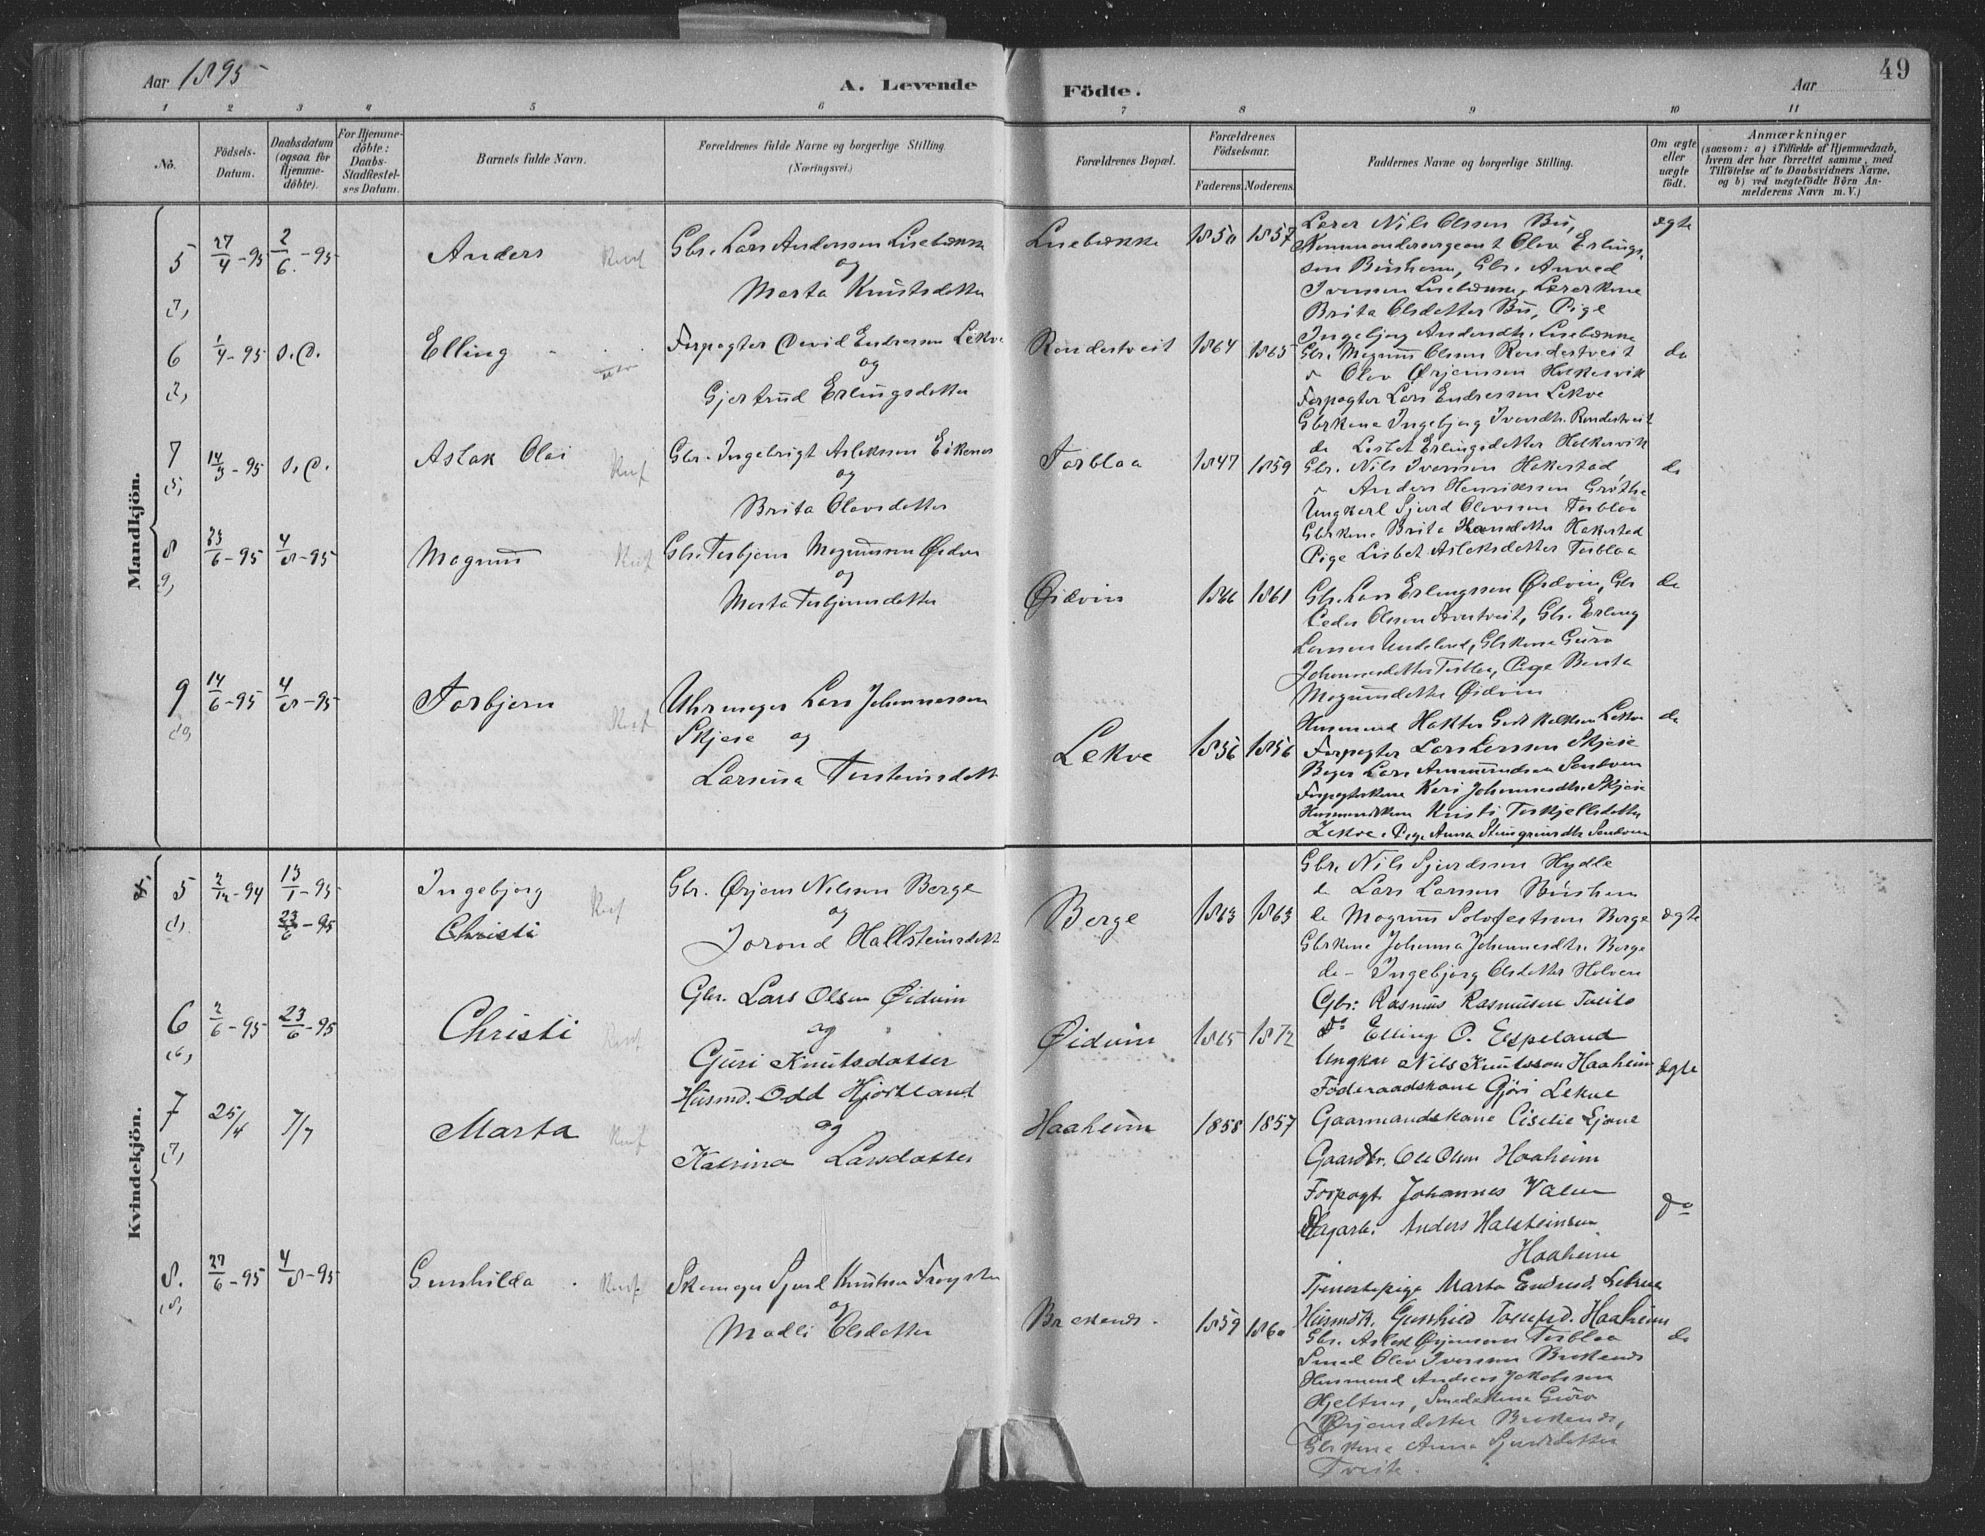 Aar 1895
A. Levende Födte.
Aar
49
1 2 3 4 5 6 7 8 9 10 11
No.
Födsels-Datum.
Daabsdatum (ogsaa for Hjemme-döbte).
For Hjemme-döbte: Daabs-Stadfæstel-ses Datum.
Barnets fulde Navn.
Forældrenes fulde Navne og borgerlige Stilling.
(Næringsvei.)
Forældrenes Bopæl.
Forældrenes Födselsaar.
Faderens. Moderens.
Faddernes Navne og borgerlige Stilling.
Om ægte eller uægte födt.
Anmærkninger
(saasom: a) i Tilfælde af Hjemmedaab,
hvem der har forrettet samme, med
Tilföielse af to Daabsvidners Navne,
og b) ved uegtefödte Börn An-
melderens Navn m. V.)
Mandkjön.
5 27/4-95 2/6-95 Anders
Gbr. Lars Andersen Lisebrekke
og
Marta Knutsdatter
Lisebrekke 1850 1857
Lærer Nils Olssen Bu,
Kommandersergeant Olav Erlings-
sen Busheim, Gbr. Amved
Iversen Lisebrekke, Lærerkone
Brita Olsdatter Bu, Pige
Ingebjørg Andersdtr. Lisebrekke
ægte
6 1/4-95 s.D. Elling
Forpagter David Endresen Lekve
og
Gjertrud Erlingsdatter
Rondestveit 1864 1865
Gbr. Magnus Olsen Rondestveit
Olav Ørjansen Holkesvik
Forpagter Lars Endresen Lekve
Gbrkone Ingebjørg Iversdtr. Rondestveit
do Lisbet Erlingsdatter Holkesvik
do
7 14/3-95 s.D. Aslak Olai
Gbr. Ingebrigt Aslaksen Eikenes
og
Brita Olavsdatter
Torbloa 1847 1859
Gbr. Nils Iversen Hakestad
Anders Henriksen Grøthe
Ungkarl Sjurd Olavsen Torbloa
Gbrkone Brita Hansdatter Hakestad
Pige Lisbet Aslaksdatter Torbloa
do
8 23/6-95 4/8-95 Magnus
Gbr. Torbjørn Magnussen Øidvin
og
Marta Torbjørnsdatter
Øidvin 1866 1861
Gbr. Lars Erlingssen Øidvin, Gbr
Peder Olssen, Gbr. Erling
Larssen, Gbrkone Guro
Johannesdatter Torbloa, Pige Berita
Magnusdatter Øidvin
do
9 14/6-95 4/8-95 Torbjørn
Uhrmager Lars Johannessen
Skjeie og
Larsina Torsteinsdatt
Lekve 1856 1856
Husmand Haktor Lekve
Forpagter Lars Larssen Skjeie
Bager Lars Ammundsen Sandven
Forpagterkone Kari Johannesdtr. Skjeie
Husmandskone Kristi Torkjellsdatter
Lekve, Pige Anna Steingrimsdtr. Sandven
do
Kvindekjön.
5 2/12-94 13/1-95 Ingebjørg
23/6-95 Christi
Gbr. Ørjans Nilsen Berge
og
Jorond Hallsteinsdatt
Berge 1863 1863
Gbr. Nils Sjurdssen Hydle
do Lars Larsen Busheim
do Magnus Solofestsen Berge
Gbrkone Johanna Johannesdtr. Berge
do - Ingebjørg Olsdatter Helven
ægte
6 2/6-95 23/6-95 Christi
Gbr. Lars Olsen Øidvin
og
Guri Knutsdatter
Øidvin 1865 1872
Gbr: Rasmus Rasmussen Tveito
do Elling O. Espeland
Ungkar Nils Knutsson Haaheim
Föderaadskone Gjöri Lekve
Gaarmandskone Ciselie Ejone
ægte
7 25/4 7/7 Marta
Husmd. Odd Hjortland
og
Katrina Larsdatter
Haaheim 1858 1857
Gaardbr. Ole Olsen Haaheim
Forpagt. Johannes Valen
Dagarb. Anders Halsteinsen
Haaheim
Tjenestepige Marta Endresd. Lekve
Husmdk. Gunhild Torsteind. Haaheim
do
8. 27/6-95 4/8-95 Gunhilda
Skomager Sjurd Knutsen
og
Madli Olsdatter
1859 1860
Gbr. Aslak Ørjansen Torbloa
Smed Olav Iversen
Husmand Anders Jakobssen
Hjeltnes, Smedekone Guro
Ørjansdatter
Gbrkone Anna Sjursdatter
Tveite.
do